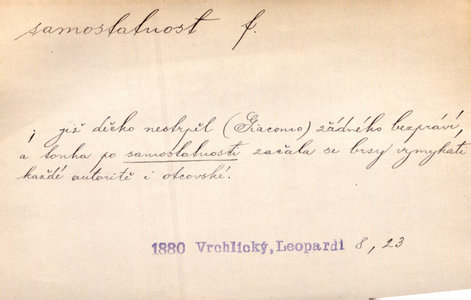 samostatnost f.
; již děcko nestrpěl (Giacomo) žádného bezpraví,
a touha po samostatnosti začala se brzy vymykati
každé autoritě i otcovské.
1880 Vrchlický, Leopardi 8, 23